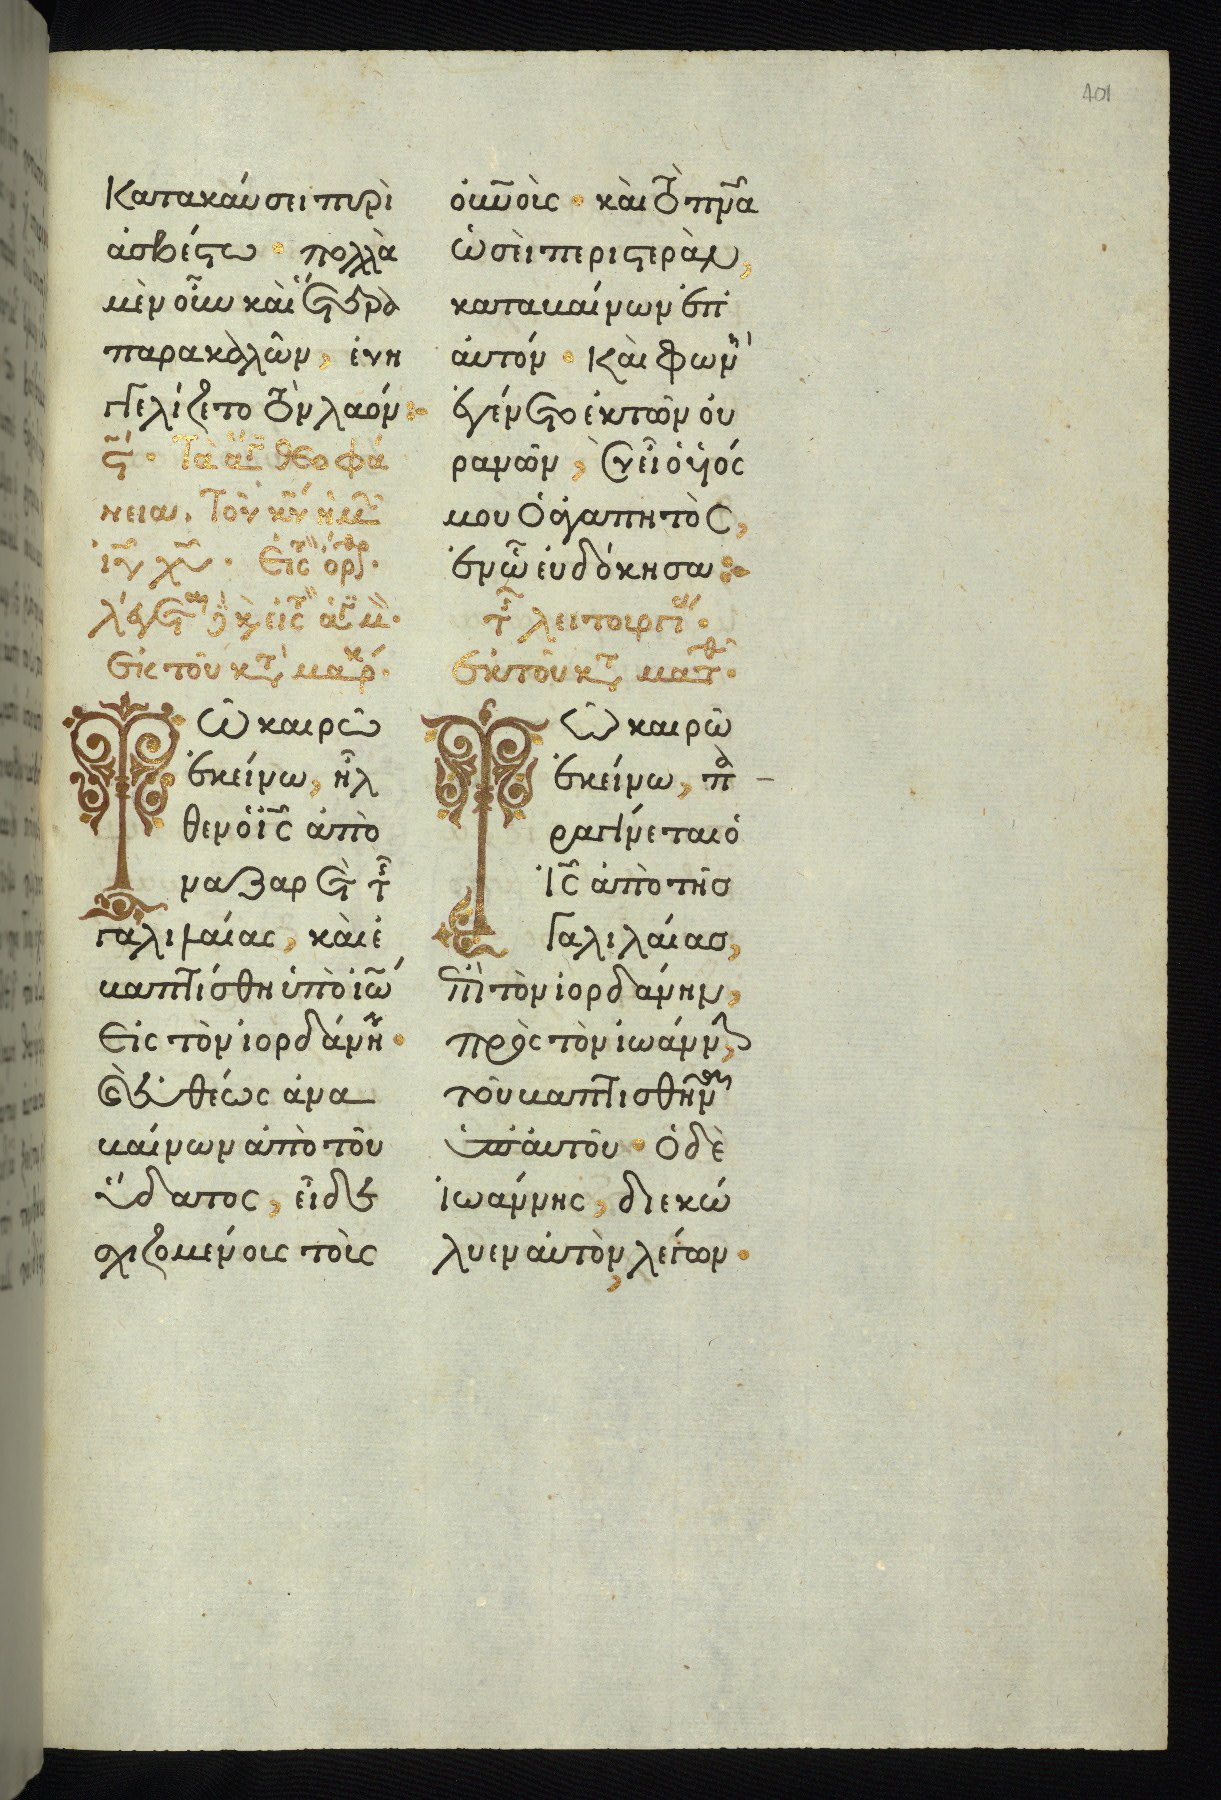 401
Κατακαύσει πυρὶ
ἀσβέστω · πολλὰ
μὲν οὖν καὶ ἕτερα
παρακαλῶν, ἐυη
γγελίζετο τὸν λαόν
Τὰ ἅγ θεοφά
νεια. Τοῦ κῦ ἡμ
ἰῦ χῦ · Εἰς ὀρθ ·
Εκ τοῦ κτ μαρκ ·
Τῶ καιρῶ
ἐκείνω, ἦλ
θεν ὁ ἰς ἀπὸ
ναζαρὲτ τῆς
γαλιλαίας, κὰι ἐ
βαπτίσθη ὑπὸ ἰω
Εἰς τὸν ἰορδάνην ·
Καὶ ἐυθέως ἀνα
βαίνων ἀπὸ τοῦ
ὕδατος, εἶδε
σχιζομένους τοὺς
ὀυνοὺς · κὰι τὸ πνα
ὡσὲι περιστερὰν,
καταβαίνων ἐπ
ἀυτόν · Κὰι φωνὴ
ἐγένετο ἐκ τῶν ὀυ
ρανῶν, Συ εἶ ὁ ὑιός
μου ὁ ἀγαπητὸς,
ἐν ὧ ἐυδόκησα
τῆς λειτουργι ·
Εκ τοῦ κτ ματθ ·
Τῶ καιρῶ
ἐκείνω, πα
ραγίνεται ὁ
Ἰς ἀπὸ τῆς
Γαλιλαίας,
ἐπὶ τὸν ἰορδάνην,
πρὸς τὸν ἰωάννην,
τοῦ βαπτισθῆναι
ὑπ ἀυτοῦ · Ὁ δὲ
Ἰωάννης, διεκώ
λυεν ἀυτὸν, λέγων ·